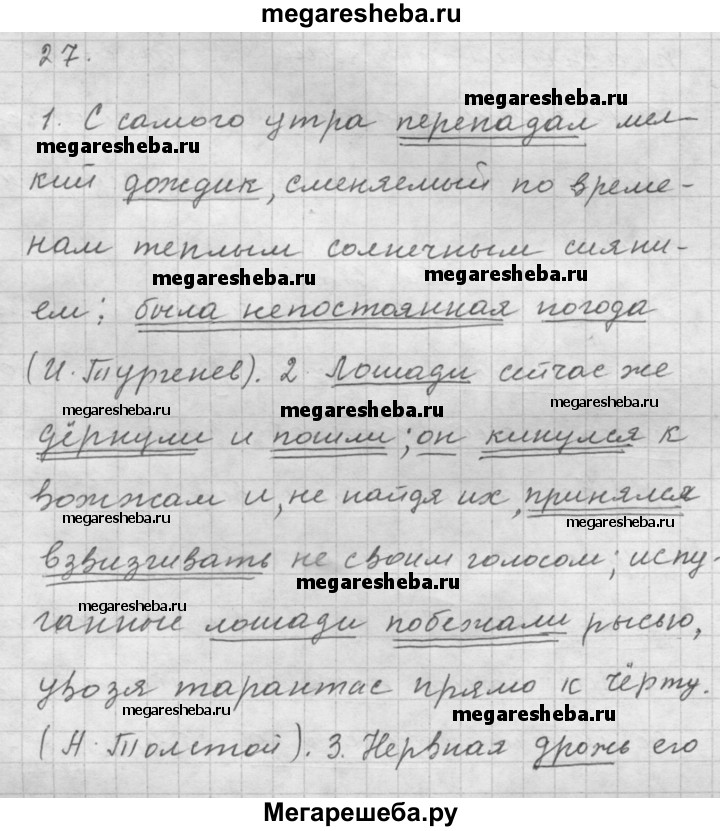 megaresheba.ru
27.
megaresheba.ru
1. С самого утра перепадал мел-
megaresheba.ru
кий дождик, сменяемый по време-
нам теплым солнечным сияни-
megaresheba.ru
megaresheba.ru
ем; была непостоянная погода
(И. Тургенев). 2 Лошади сейчас же
megaresheba.ru
megaresheba.ru
megaresheba.ru
дёрнули и пошли; он кинулся к
вожжам и, не найдя их, принялся
megaresheba.ru
megaresheba.ru
взвизгивать не своим голосом; испу-
megaresheba.ru
megaresheba.ru
ганные лошади побежали рысью,
увозя тарантас прямо к чёрту.
megaresheba.ru
megaresheba.ru
(А. Толстой). 3. Нервная дрожь его
Мегарешеба.ру